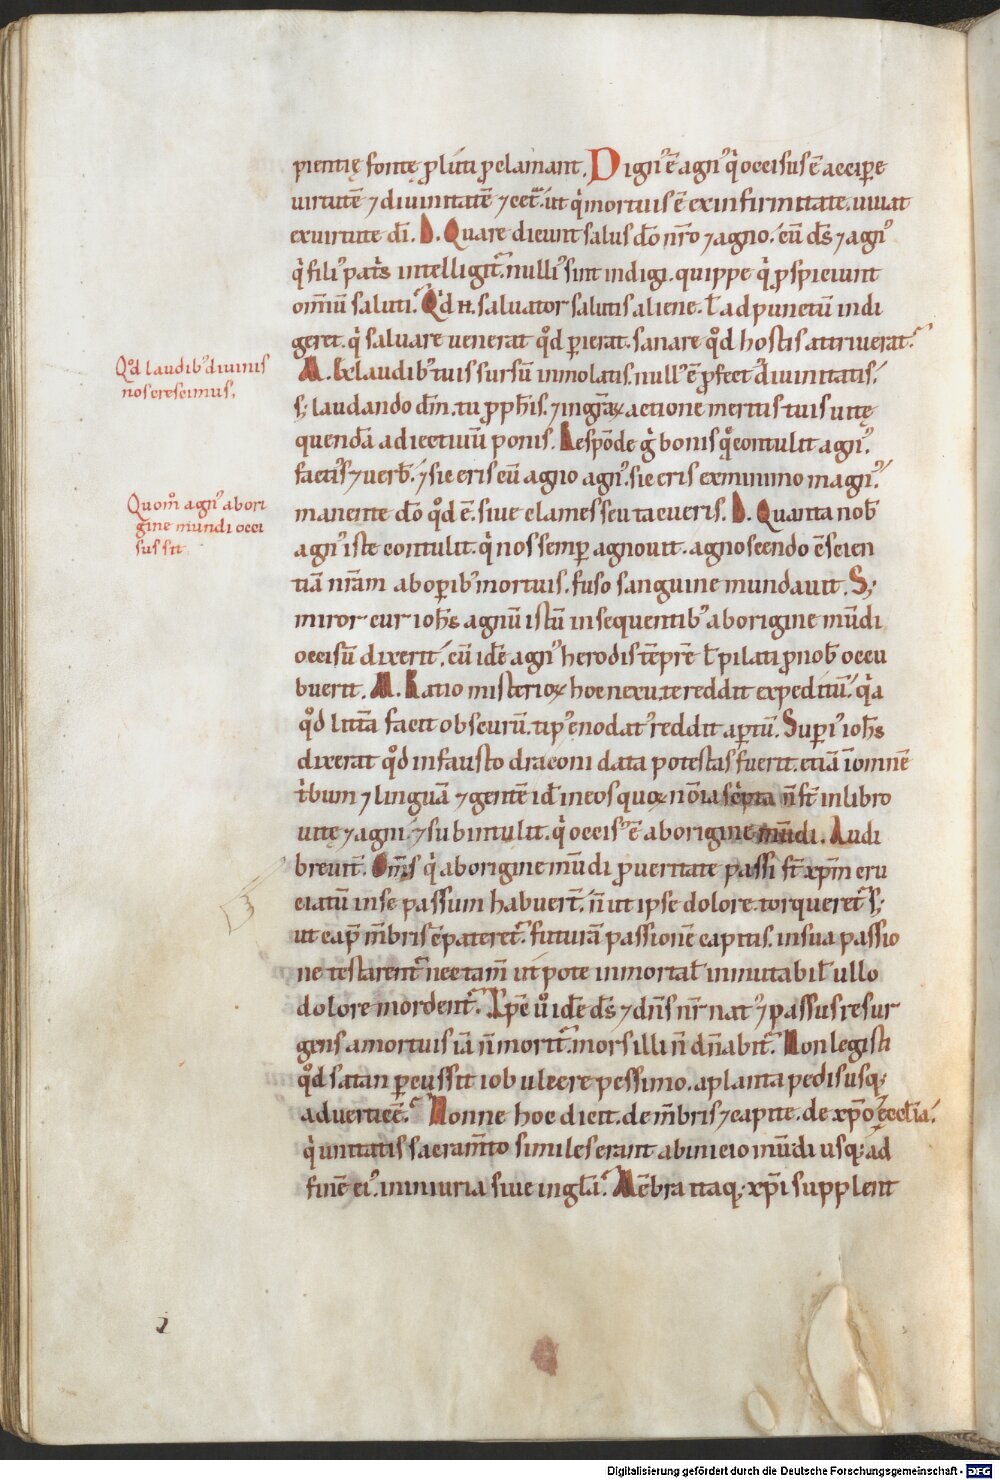 pientię fontę ꝓluti ꝓclamant. Dignꝰ ē agnꝰ qͥ occisus ē acciꝑe
uirtutē ⁊ diuinitatē ⁊ cetͣ. ut qͥ mortuus ē ex infirmitate. uiuat
ex uirtute dī. D. Quare dicunt salus dō nr̄o ⁊ agno. cū ds̄ ⁊ agnꝰ
qͥ filiꝰ patͥs intelligitᷣ. nulliꝰ sint indigi. quippe qͥ ꝓspiciunt
omniū saluti. Qͥd n. saluator salutis aliene. ł ad punctū indi
geret. qͥ saluare uenerat qͦd ꝑierat. sanare qͦd hostis attriuerat.
Qͦd laudibꝰ diuinis
nos crescimus.
M. Ex laudibꝰ tuis sursū inmolatis. nullꝰ ē ꝓfectꝰ diuinitatis.
s; laudando dm̄. tu ꝓph̄is. ⁊ in gr̄aꝝ actione meritis tuis uitę
quendā adiectiuū ponis. Respōde gͦ bonis qͦ contulit agnꝰ.
factis ⁊ uerb̄. ⁊ sic eris cū agno agnꝰ. sic eris ex minimo magnꝰ.
Quom̊ agnꝰ ab ori
gine mundi occi
sus sit
manente dō qͦd ē. siue clames seu tacueris. D. Quanta nob̄
agnꝰ iste contulit. qͥ nos semꝑ agnouit. agnoscendo ēscien
tiā nr̄am ab oꝑibꝰ mortuis. fuso sanguine mundauit. S;
miror cur ioh̄s agnū istū in sequentibꝰ ab origine mūdi
occisū dixerit. cū idē agnꝰ herodis tēpr̄e ł pilati ꝓ nob̄ occu
buerit. M. Ratio misterioꝝ hoc nexū. te reddit expeditū. qͥa
qͦd litt̄a facit obscurū. tipꝰ enodatꝰ reddit aꝑtū. Suꝑiꝰ ioh̄s
dixerat qͦd infausto draconi data potestas fuerit. etiā ī omnē
tͥbum ⁊ linguā ⁊ gentē id̄ in eos quoꝝ nōia scͥpta n̄ sт̄ in libro
uitę ⁊ agni. ⁊ subintulit. qͥ occisꝰ ē ab origine mūdi. Audi
breuit̄. Om̄s qͥ ab origine mūdi ꝓ ueritate passi sт̄ xp̄m cru
ciatū in se passum habuer̄t. n̄ ut ipse dolore torqueretᷣ. s;
ut cap̄ m̄bris ēpateretᷣ. futurā passionē capitis. in sua passio
ne testarentᷣ. nec tam̄ utpote inmortal̄ inmutabil̄ ullo
dolore mordentᷣ. Xp̄c u̇ idē ds̄ ⁊ dn̄s nr̄ natꝰ ⁊ passus resur
gens a mortuis iā n̄ moritᷣ. mors illi n̄ dn̄abitᷣ. Non legisti
qͦd satan ꝑcussit iob ulcere pessimo. a planta pedis usq;
ad uerticē. Nonne hoc dicit. de m̄bris ⁊ capite. de xp̄o ⁊ eccl̄ia.
qͥ unitatis sacram̄to similes erant ab inicio mūdi usq; ad
finē eiꝰ. in iniuria siue in gl̄a. Mēbra itaq; xp̄i supplent
Digitalisierung gefördert durch die Deutsche Forschungsgemeinschaft - DFG